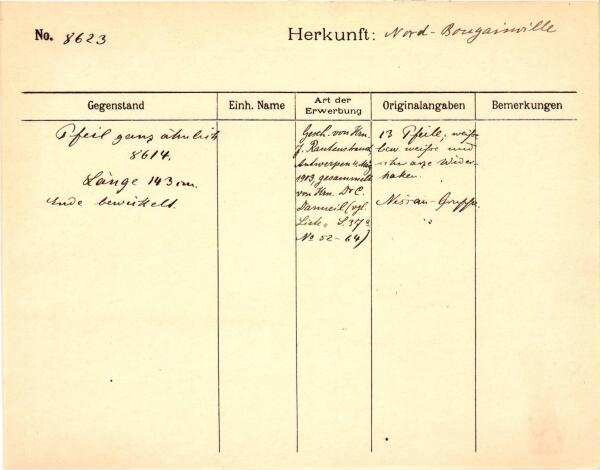 No. 8623
Herkunft: Nord-Bougainville
Gegenstand
Einh. Name
Art der
Erwerbung
Originalangaben
Bemerkungen
Pfeil ganz ähnlich
8614.
Länge 143 cm.
Ende bewickelt.
Gesch. von Hrn.
J. Rautenstrauch
Antwerpen
1903, gesammelt
von Hrn. Dr C.
Danneil (vgl.
Liste „S 37"
No 52-64)
13 Pfeile,
weiße und
schwarze Wider-
haken.
Nissan-Gruppe.